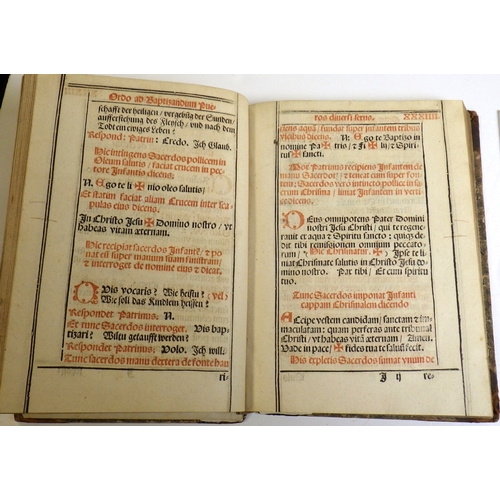 Ordo ad Baptizandum Pue-
schafft der heiligen / vergebūg der Sunden /
aufferstehung des Fleysch / vnd nach dem
Todt ein ewiges leben?
Respond: Patrin9: Credo. Ich Glaub.
Hic intingens Sacerdos pollicem in
Oleum salutis, faciat crucem in pec-
tore Infantis dicens.
N. Ego te li ✠ nio oleo salutis /
Et statim faciat aliam Crucem inter sca-
pulas eius dicens.
In Christo Jesu ✠ Domino nostro / vt
habeas vitam æternam.
Hic recipiat sacerdos Infantē / & po-
nat eū super manum suam sinistram /
& interroget de nomine eius & dicat.
Quis vocaris? Wie heistu? (vel)
Wie soll das Kindlein heissen?
Respondet Patrinus: N.
Et tunc Sacerdos interroget. Vis bap-
tizari? Wilcu getaufft werden?
Respondet Patrinus: Volo. Ich will.
Tunc sacerdos manu dextera de fonte hau
ri-
ros diversi sexus.
XXXIIII.
riens aquā / fundat super infantem tribus
vicibus dicens. N. Ego te Baptizo in
nomine Pa ✠ tris / & Fi ✠ lij / & Spiri-
tus ✠ sancti.
Mox Patrinus recipiens Infantem de
manu Sacerdotis / & teneat eum super fon-
tem: & Sacerdos vero intincto pollice in
chrisma / liniat Infantem in verti-
ce dicens.
DEus omnipotens Pater Domini
nostri Jesu Christi / qui te regene-
ravit ex aqua & Spiritu sancto; quiq3 de-
dit tibi remissionem omnium peccato-
rum / Hic Chrismatur. ✠ Ipse te li-
niat Chrismate salutis in Christo Jesu Do-
mino nostro. Pax tibi / Et cum spiritu
tuo.
Tunc Sacerdos imponat Infanti
cappam Chrismalem dicendo
ACcipe vestem candidam / sanctam & im-
maculatam: quam perferas ante tribunal
Christi / vt habeas vitā æternam / Amen.
Vade in pace / ✠ fides tua te saluū fecit.
His expletis Sacerdos sumat vnum de
J ij
re-